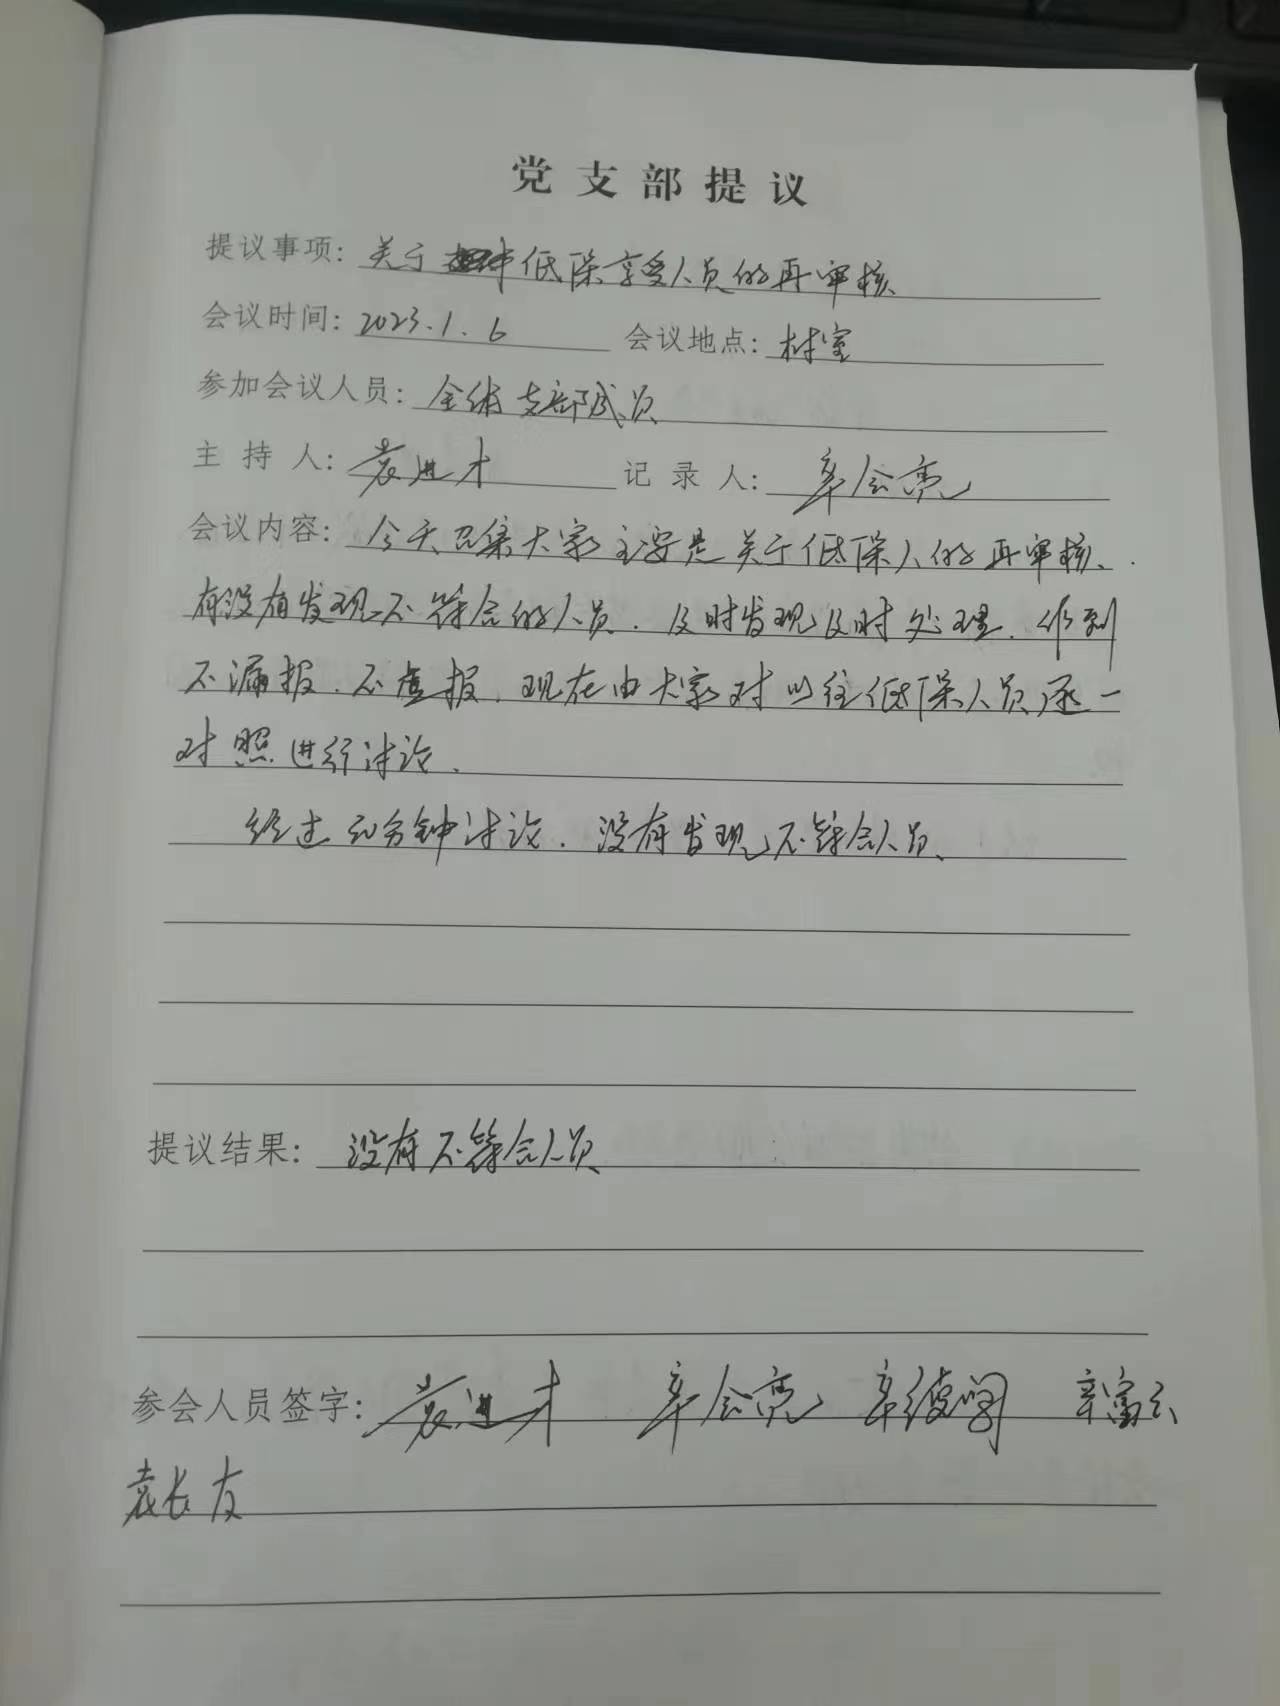 党支部提议
提议事项：关于低保享受人员的再审核
会议时间：2023.1.6 会议地点：村室
参加会议人员：全体支部成员
主持人：袁进才 记录人：辛会亮
会议内容：今天召集大家主要是关于低保人的再审核、
有没有发现不符合的人员．及时发现及时处理．作到
不漏报．不虚报．现在由大家对以往低保人员逐一
对照进行讨论．
经过50分钟讨论．没有发现不符合人员、
提议结果：没有不符合人员
参会人员签字：袁进才 辛会亮 辛 辛富云
袁长友